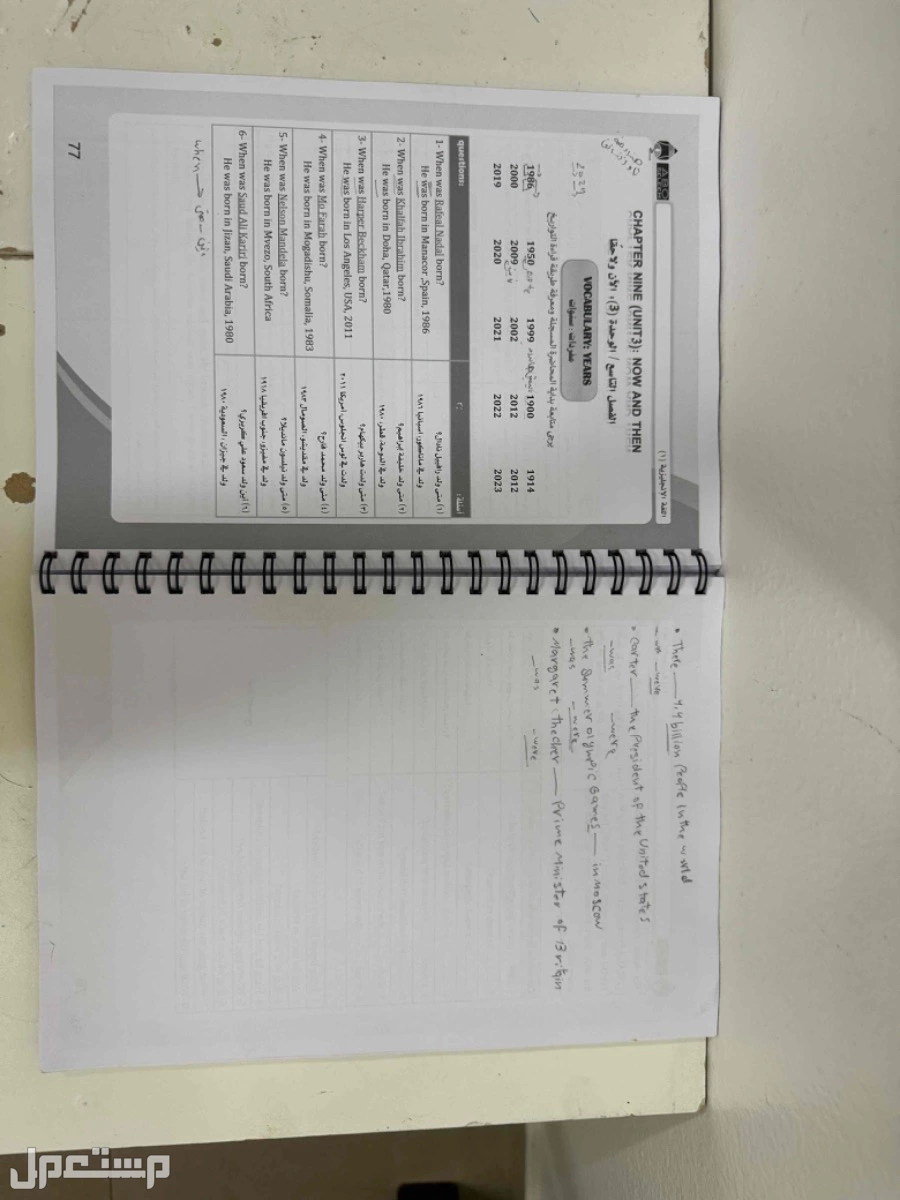 ABC
اللغة الانجليزية (١)
CHAPTER NINE (UNIT3): NOW AND THEN
الفصل التاسع / الوحدة (3)، الآن ولاحقًا
VOCABULARY: YEARS
مفردات : سنوات
يرجى متابعة بداية المحاضرة المسجلة ومعرفة طريقة قراءة التواريخ
1986 1950 1999 1900 1914
2000 2009 2002 2012 2012
2019 2020 2021 2022 2023
questions: أسئلة :
1- When was Rafeal Nadal born?
He was born in Manacor ,Spain, 1986
(١) متى ولد رافييل نادال؟
ولد في ماناكور، اسبانيا ١٩٨٦
2- When was Khalfah Ibrahim born?
He was born in Doha, Qatar,1980
(٢) متى ولد خليفة إبراهيم؟
ولد في الدوحة، قطر، ١٩٨٠
3- When was Harper Beckham born?
He was born in Los Angeles, USA, 2011
(٣) متى ولدت هاربر بيكهام؟
ولدت في لوس انجلوس، امريكا ٢٠١١
4- When was Mo Farah born?
He was born in Mogadishu, Somalia, 1983
(٤) متى ولد محمد فارح؟
ولد في مقديشو، الصومال ١٩٨٣
5- When was Nelson Mandela born?
He was born in Mvezo, South Africa
(٥) متى ولد نيلسون مانديلا؟
ولد في مفيزو، جنوب افريقيا ١٩١٨
6- When was Saud Ali Kariri born?
He was born in Jizan, Saudi Arabia, 1980
(٦) أين ولد سعود علي كريري؟
ولد في جيزان ، السعودية ١٩٨٠
when → متى
77
• There — 4,4 billion People in the world
– was – were
• Carter — the President of the United states
– was – were
• The Summer olympic Games — in Moscow
– was – were
• Margaret thecher — Prime Minister of Britain
– was – were
مستعمل